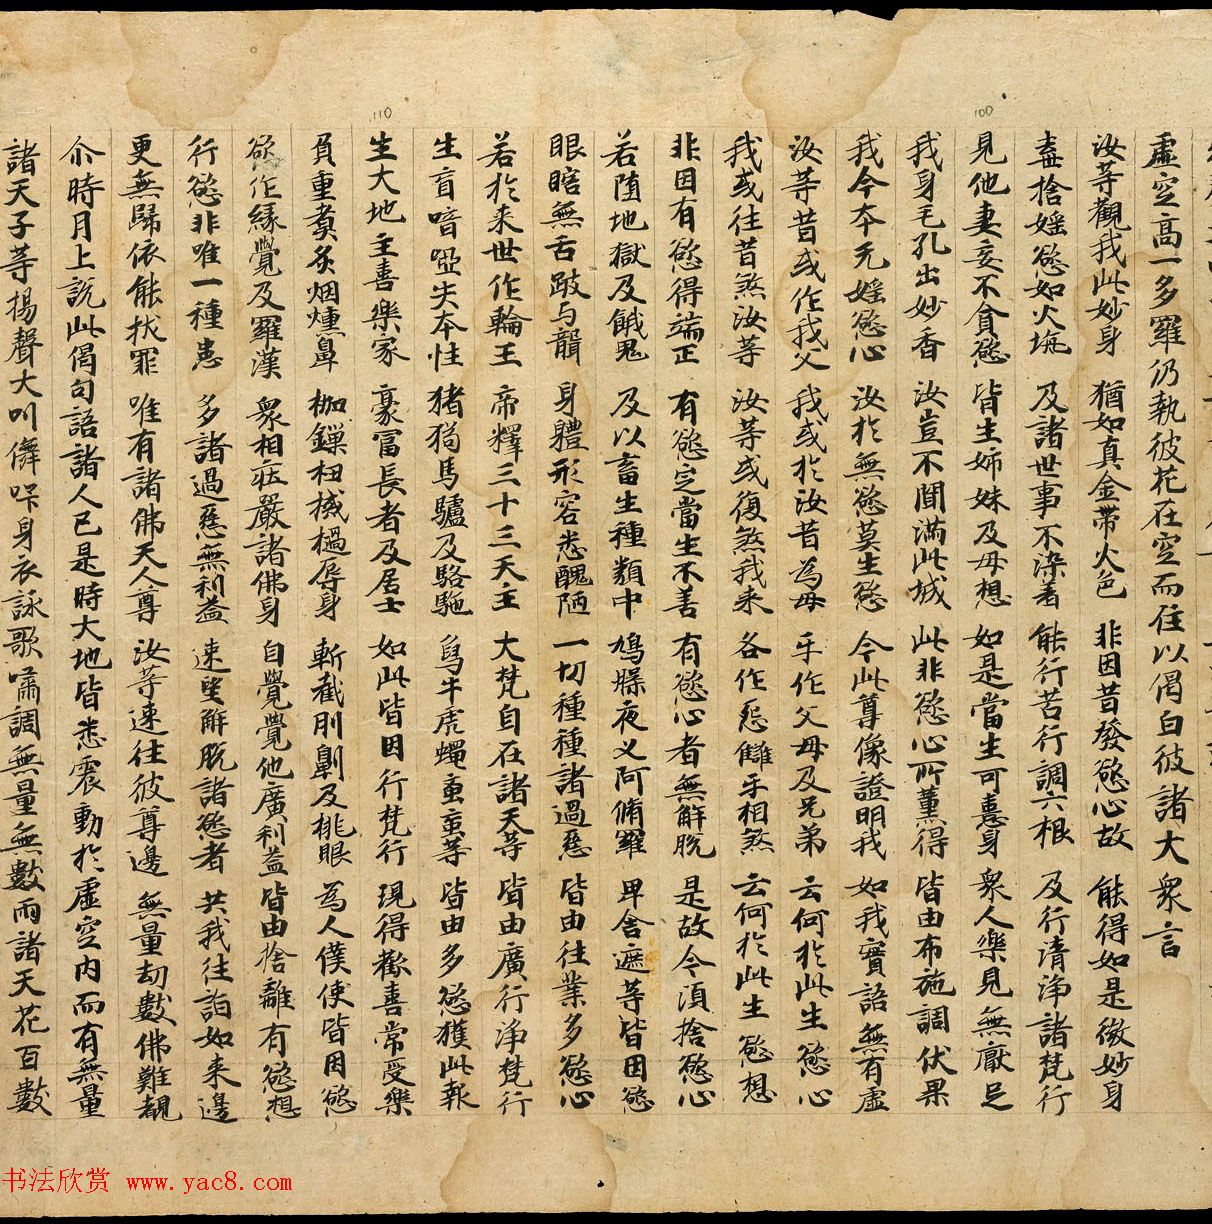 虛空高一多羅仍執彼花在空而住以偈白彼諸大衆言
汝等觀我此妙身 猶如真金帶火色 非因昔發慾心故 能得如是微妙身
盡捨婬慾如火坑 及諸世事不染着 能行苦行調六根 及行清淨諸梵行
見他妻妾不貪慾 皆生姊妹及母想 如是當生可憙身 衆人樂見無厭足
我身毛孔出妙香 汝豈不聞滿此城 此非慾心所薰得 皆由布施調伏果
我今本无婬慾心 汝於無慾莫生慾 今此尊像證明我 如我實語無有虛
汝等昔或作我父 我或於汝昔為母 乎作父母及兄弟 云何於此生慾心
我或往昔煞汝等 汝等或復煞我來 各作惡讎乎相煞 云何於此生慾想
非因有慾得端正 有慾定當生不善 有慾心者無解脫 是故今須捨慾心
若墮地獄及餓鬼 及以畜生種類中 鳩槃夜叉阿脩羅 卑舍遮等皆因慾
眼瞎無舌跛与聾 身體形容悉醜陋 一切種種諸過惡 皆由往業多慾心
若於來世作輪王 帝釋三十三天主 大梵自在諸天等 皆由廣行淨梵行
生盲喑瘂失本性 猪狗馬驢及駱駞 鳥牛虎蠅䖝䖝等 皆由多慾獲此報
生大地主善樂家 豪富長者及居士 如此皆因行梵行 現得歡喜常受樂
負重煑炙烟燻鼻 枷鏁杻械檛辱身 斬截刖劓及挑眼 為人僕使皆因慾
慾作緣覺及羅漢 衆相莊嚴諸佛身 自覺覺他廣利益 皆由捨離有慾想
行慾非唯一種患 多諸過惡無利益 速望解脫諸慾者 共我往詣如來邊
更無歸依能拔罪 唯有諸佛天人尊 汝等速往彼尊邊 無量劫數佛難覩
尒時月上說此偈句語諸人已是時大地皆悉震動於虛空內而有無量
諸天子等揚聲大叫儛身衣詠歌嘯調無量無數雨諸天花百數
110
100
书法欣赏 www.yac8.com